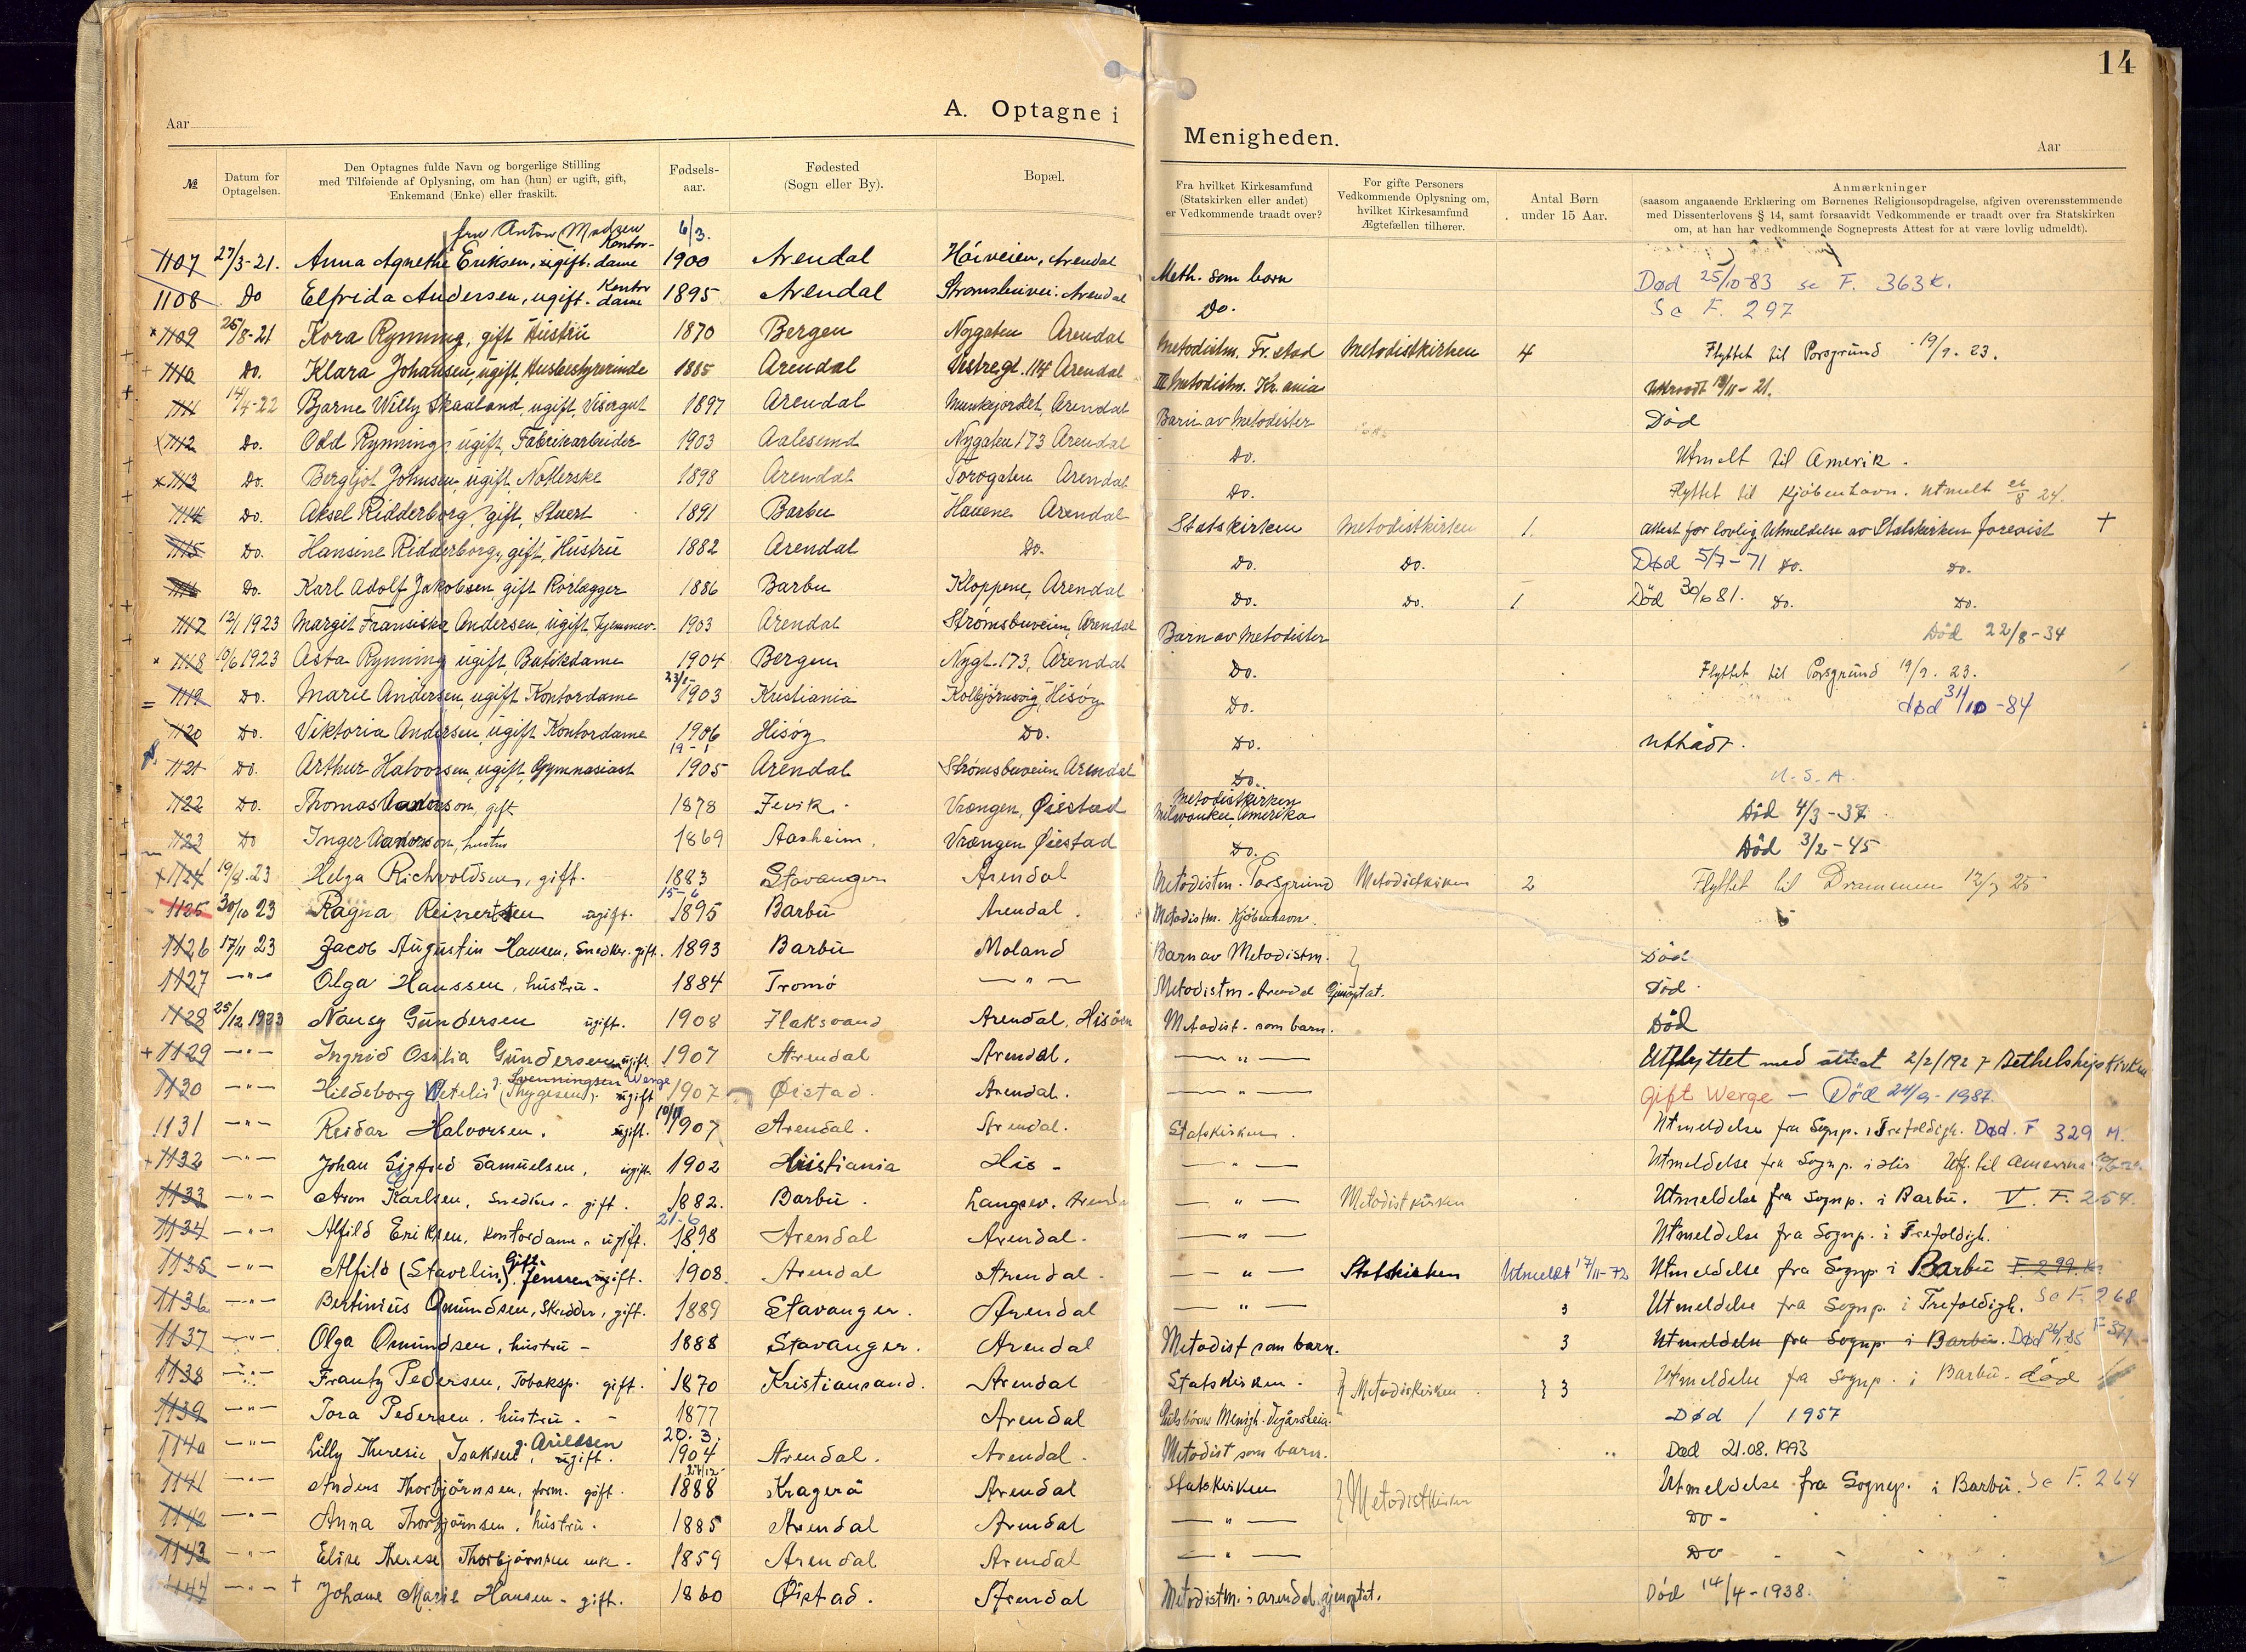 14
A. Optagne i Menigheden.
Aar Aar
№ Datum for Optagelsen. Den Optagnes fulde Navn og borgerlige Stilling med Tilføiende af Oplysning, om han (hun) er ugift, gift, Enkemand (Enke) eller fraskilt. Fødsels-aar. Fødested (Sogn eller By). Bopæl. Fra hvilket Kirkesamfund (Statskirken eller andet) er Vedkommende traadt over? For gifte Personers Vedkommende Oplysning om, hvilket Kirkesamfund Ægtefællen tilhører. Antal Børn under 15 Aar. Anmærkninger (saasom angaaende Erklæring om Børnenes Religionsopdragelse, afgiven overensstemmende med Dissenterlovens § 14, samt forsaavidt Vedkommende er traadt over fra Statskirken om, at han har vedkommende Sogneprests Attest for at være lovlig udmeldt).
fru Anton Madsen 6/3.
1107 27/3-21. Anna Agnethe Eriksen, ugift. Kontordame 1900 Arendal Høiveien, Arendal Meth. som barn Død 25/10-83 se F. 363 K.
1108 Do Elfrida Andersen, ugift. Kontordame 1895 Arendal Strømsbuvei. Arendal Do. Se F. 297
1109 26/8-21 Kora Rynning, gift Hustru 1870 Bergen Nygaten Arendal Metodistm. Fr.stad Metodistkirken 4 Flyttet til Porsgrund 19/9. 23.
1110 Do. Klara Johansen, ugift, Husbestyrerinde 1885 Arendal Vestregt. 114 Arendal III Metodistm. Kr.ania Uttraadt 18/11-21.
1111 14/4-22 Bjarne Willy Skaaland, ugift, Visergut 1897 Arendal Munkejordet, Arendal Barn av Metodister Död
1112 Do. Odd Rynning, ugift, Fabrikarbeider 1903 Aalesund Nygaten 173 Arendal Do. Utmelt til Amerik.
1113 Do. Bergljot Johnsen, ugift, 1898 Arendal Torvgaten Arendal Do. Flyttet til Kjöbenhavn. Utmelt 26/8 24.
1114 Do. Aksel Ridderborg, gift, Stuert 1891 Barbu Havene Arendal Statskirken Metodistkirken 1. Attest for lovlig Utmeldelse av Statskirken forevist +
1115 Do. Hansine Ridderborg, gift, Hustru 1882 Arendal Do. Do. Do. Død 5/7-71 Do. Do.
1116 Do. Karl Adolf Jakobsen, gift Rörlægger 1886 Barbu Kloppene, Arendal Do. Do. 1 Död 30/6 81. Do. Do.
1117 12/1 1923 Margit Fransiska Andersen, ugift, Hjemmev. 1903 Arendal Strømsbuveien, Arendal Barn av Metodister Död 22/8-34
1118 10/6 1923 Asta Rynning ugift Butikdame 1904 Bergen Nygt. 173, Arendal Do. Flyttet til Porsgrund 19/9. 23.
1119 Do. Marie Andersen, ugift Kontordame 1903 Kristiania Kolbjørnsvig, Hisøy Do. død 31/10-84
1120 Do. Viktoria Andersen, ugift Kontordame 1906 Hisøy Do. Do. uttrådt.
1121 Do. Arthur Halvorsen, ugift, Gymnasiast 19-1 1905 Arendal Strømsbuveien Arendal Do. U.S.A.
1122 Do. Thomas Aanonson, gift 1878 Fevik. Vrængen, Øiestad Metodistkirken Milwaukee, Amerika Död 4/3-37
1123 Do Inger Aanonson, hustru 1869 Aasheim. Vrængen Øiestad Do. Död 3/2-45
1124 19/8-23 Helga Richvoldsen, gift. 1883 Stavanger Arendal Metodistm. Porsgrund Metodistkirken 2 Flyttet til Drammen 12/3 25
1125 30/10 23 Ragna Reinertsen ugift. 15-6 1895 Barbu Arendal. Metodistm. Kjöbenhavn.
1126 17/11 23 Jacob Augustin Hansen, Snedker. gift. 1893 Barbu Moland Barn av Metodistm. Död
1127 —"— Olga Hanssen, hustru. 1884 Tromö —"— Metodistm. Arendal Gjenoptat. Död.
1128 25/12 1923 Nancy Gundersen ugift. 1908 Flaksvand Arendal, Hisöen Metodist. som barn. Död
1129 —"— Ingrid Osilia Gundersen ugift. 1907 Arendal Arendal. —"— Utflyttet med attest 2/2/1927 Bethelskips Kirken
1130 —"— Hildeborg (Thygesen) g. Svenningsen Werge ugift 1907 Øistad. Arendal. —"— Gift Werge — Död 24/9-1987.
1131 —"— Reidar Halvorsen. ugift. 10/11 1907 Arendal. Arendal. Statskirken. Utmeldelse fra Sognp. i Trefoldigh. Død. F 329 M.
1132 —"— Johan Sigfred Samuelsen, ugift. 1902 Kristiania His - —"— Utmeldelse fra Sognp. i His Utf. til Amerika
1133 —"— Aron Karlsen, Snedker. gift. 1882. Barbu. Langsev. Arendal —"— Metodistkirken Utmeldelse fra Sognp. i Barbu. V. F. 254.
1134 —"— Alfild Eriksen, Kontordame. ugift. 21-6 1898 Arendal Arendal. —"— Utmeldelse fra Sognp. i Trefoldigh.
1135 —"— Alfild (Stavelin). Gift. Jenssen ugift. 1908. Arendal Arendal. —"— Statskirken Utmeldt 17/11-72 Utmeldelse fra Sognp. i Barbu F. 299. K.
1136 —"— Bertinius Omundsen, Skredder, gift. 1889 Stavanger. Arendal —"— 3 Utmeldelse fra Sognp. i Trefoldigh. Se F. 268
1137 —"— Olga Omundsen, hustru - 1888 Stavanger. Arendal Metodist som barn. 3 Utmeldelse fra Sognp. i Barbu. Død 26/1-85 F 371
1138 —"— Frantz Pedersen, Tobaksp. gift. 1870 Kristiansand. Arendal Statskirken. Metodiskirken } 3 Utmeldelse fra Sognp. i Barbu. död
1139 —"— Tora Pedersen. hustru. 1877 Arendal Menigh. Vegårsheia. Død / 1957
1140 —"— Lilly Theresie Isaksen, g. Arildsen ugift. 20.3. 1904 Arendal. Arendal. Metodist som barn. Død 21.08.1993
1141 —"— Anders Thorbjörnsen, form. gift. 27/12 1888 Kragerö Arendal Statskirken } Metodistkirken Utmeldelse fra Sognep. i Barbu. Se F. 264
1142 —"— Anna Thorbjörnsen, hustru. 1885 Arendal Arendal —"— Do -
1143 —"— Elise Therese Thorbjörnsen enke. 1859 Arendal Arendal —"— Do
1144 —"— + Johane Marie Hansen - gift. 1860 Øistad. Arendal Metodistm. i Arendal. gjenoptat. Död 14/4-1938.